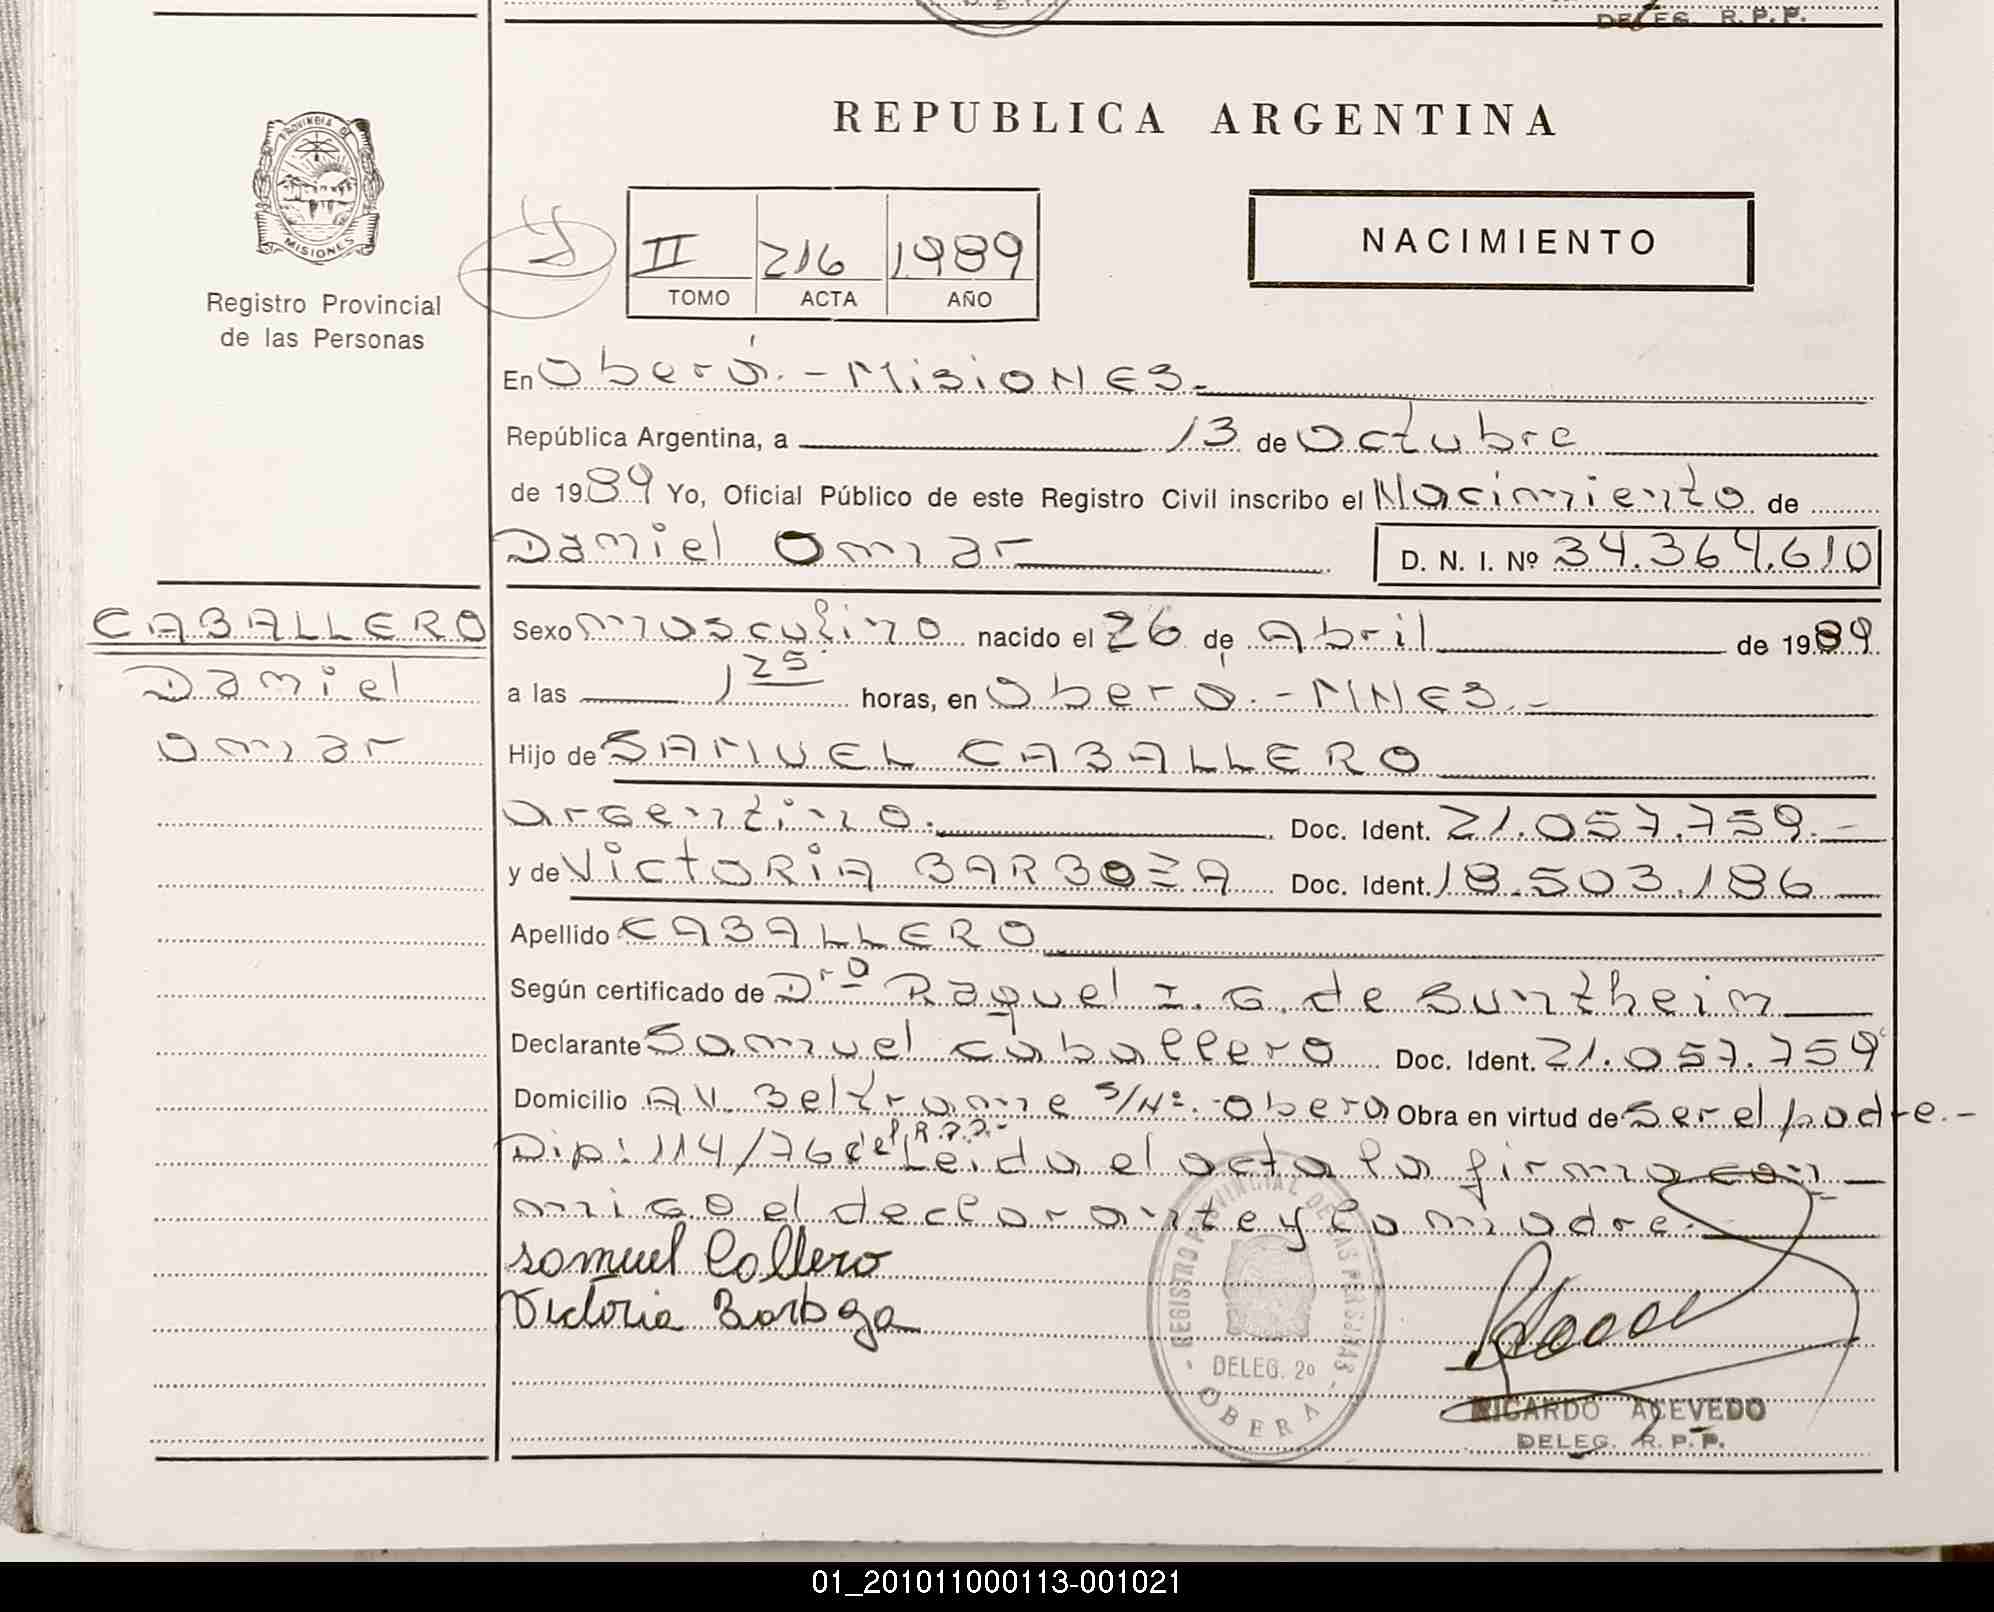 DELEG. R.P.P.
REPUBLICA ARGENTINA
PROVINCIA DE
MISIONES
Registro Provincial
de las Personas
II 216 1989
TOMO ACTA AÑO
NACIMIENTO
En Oberá.-MisioNES.-
República Argentina, a 13 de Octubre
de 1989 Yo, Oficial Público de este Registro Civil inscribo el Nacimiento de
Daniel Omar D. N. I. Nº 34.364.610
CABALLERO
Daniel
Omar
Sexo masculino nacido el 26 de Abril de 1989
a las 1 25 horas, en Oberá.-MNES.-
Hijo de SAMUEL CABALLERO
argentino. Doc. Ident. 21.057.759.-
y de VictORiA BARBOZA Doc. Ident. 18.503.186
Apellido CABALLERO
Según certificado de Drª Raquel I. G. de Suntheim
Declarante Samuel Caballero Doc. Ident. 21.057.759
Domicilio AV. Beltrame S/Nº.-Obera Obra en virtud de Ser el padre.-
Dip: 114/76 del R.P.P.- Leida el acta la firma con
migo el declarante y la madre.
Samuel Callero
Victoria Barboza
REGISTRO PROVINCIAL DE LAS PERSONAS
DELEG. 2º
OBERA
RICARDO ACEVEDO
DELEG. R.P.P.
01_201011000113-001021